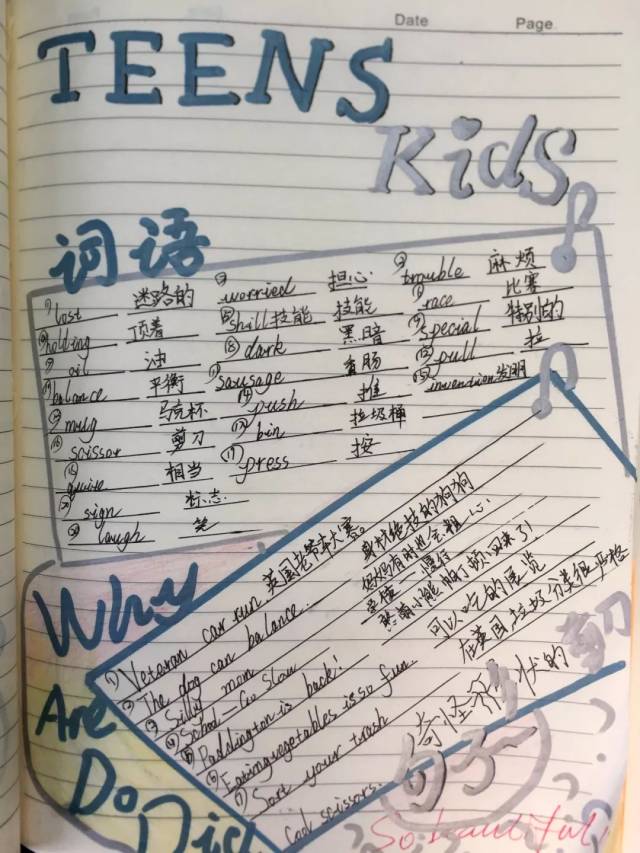 Date Page
TEENS
Kids
词语
①lost 迷路的 ②worried 担心 ③trouble 麻烦
holding 顶着 skill 技能 技能 race 比赛
oil 油 dark 黑暗 special 特别的
balance 平衡 sausage 香肠 pull 拉
mug 马克杯 push 推 invention 发明
scissor 剪刀 bin 垃圾桶
quire 相当 press 按
sign 标志
laugh 笔
Why
Are
Do
Dish
①Veteran car run 英国老爷车大赛。
②The dog can balance. 身材绝技的狗狗
③Silly mom 妈妈有时也会粗心
④School—Go Slow 慢行
⑤Paddington is back! 帕丁顿回来了!
⑥Eating vegetables is so fun. 可以吃的展览
⑦Sort your trash 在英国垃圾分类很严格
Cool scissors. 奇怪形状的剪刀
句子
So beautiful!